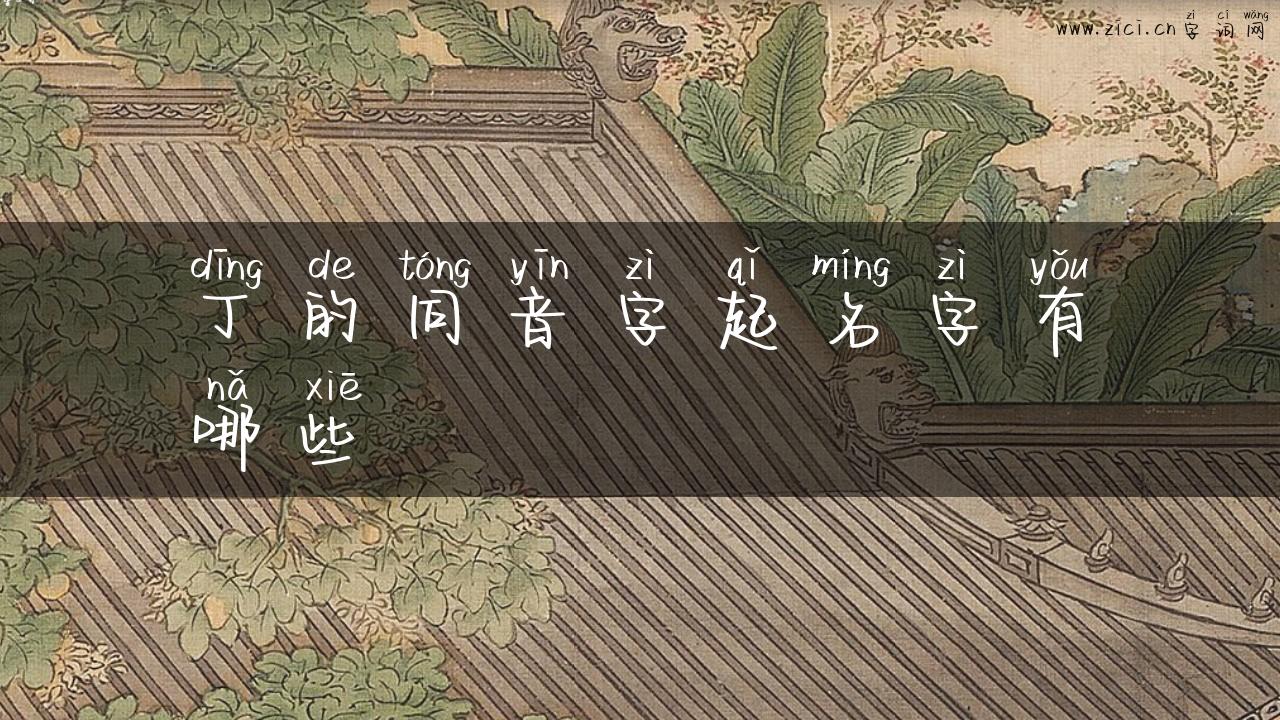 zì cí wǎng
www.zici.cn 字 词 网
dīng de tóng yīn zì qǐ míng zì yǒu
丁 的 同 音 字 起 名 字 有
nǎ xiē
哪 些